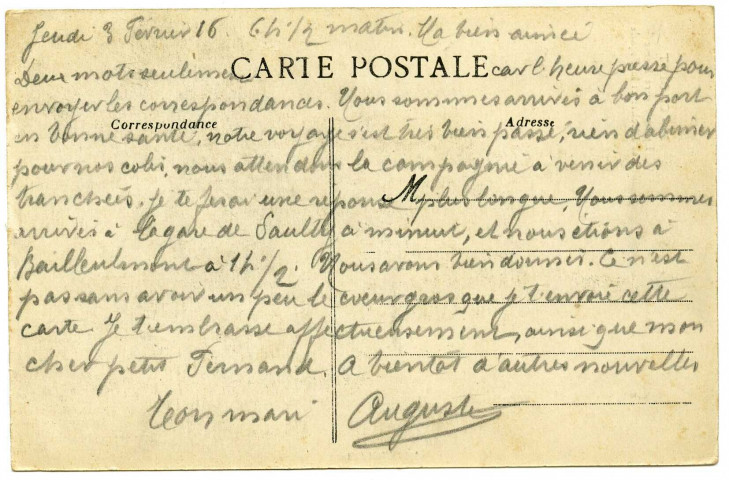 Jeudi 3 Février 16. 6h 1/2 matin. Ma bien aimée
Deux mots seulement car l'heure presse pour
CARTE POSTALE
envoyer les correspondances. Nous sommes arrivés à bon port
Correspondance
Adresse
en bonne santé, notre voyage s'est très bien passé, rien d'abimer
pour nos colis, nous attendons la compagnie à venir des
tranchées. Je te ferai une réponse plus longue, Nous sommes
M
arrivés à la gare de Saulty à minuit, et nous étions à
Bailleulmont à 1h 1/2. Nous avons bien dormir. Ce n'est
pas sans avoir un peu le coeur gros que je t'envoie cette
carte Je t'embrasse affectueusement, ainsi que mon
cher petit Fernand. A bientot d'autres nouvelles
Ton mari Auguste